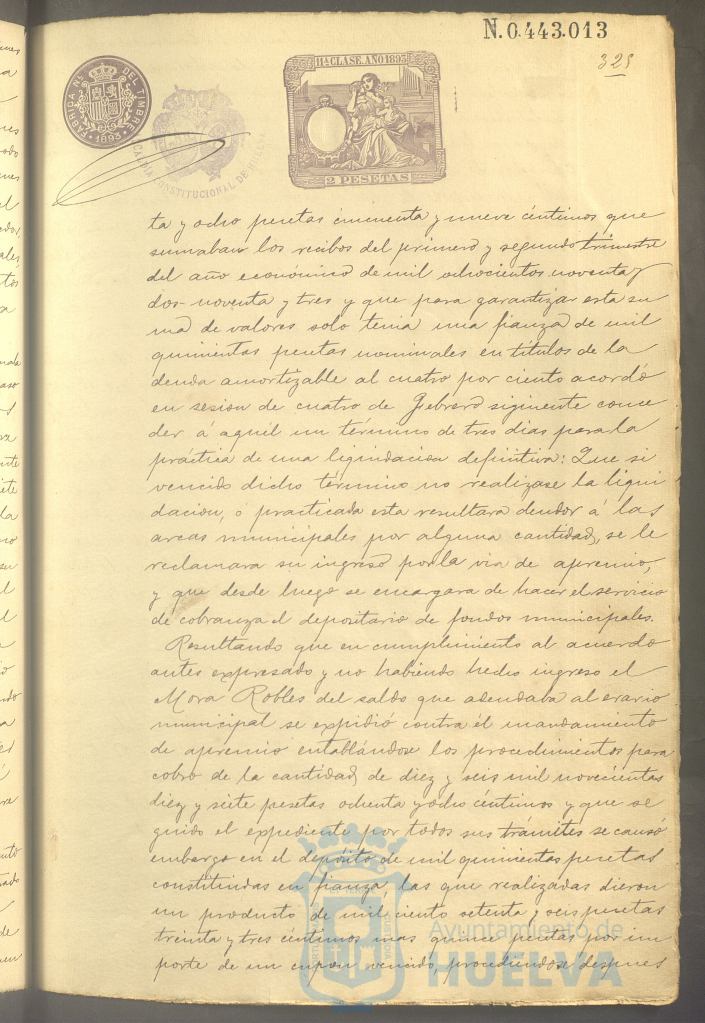 N. 0.443.013
325
11ª CLASE. AÑO 1893
FABRICA NL. DEL TIMBRE
1893
ALCALDIA CONSTITUCIONAL DE HUELVA
2 PESETAS
ta y ocho pesetas cincuenta y nueve céntimos que
sumaban los recibos del primero y segundo trimestre
del año económico de mil ochocientos noventa y
dos-noventa y tres y que para garantizar esta su
ma de valores solo tenia una fianza de mil
quinientas pesetas nominales en títulos de la
deuda amortizable al cuatro por ciento acordó
en sesion de cuatro de Febrero siguiente conce
der á aquel un término de tres dias para la
práctica de una liquidacion definitiva: Que si
vencido dicho término no realizase la liqui
dacion, o practicada esta resultara deudor á las
arcas municipales por alguna cantidad, se le
reclamara su ingreso por la via de apremio,
y que desde luego se encargara de hacer el servicio
de cobranza el depositario de fondos municipales.
Resultando que en cumplimiento al acuerdo
antes expresado y no habiendo hecho ingreso el
Mora Robles del saldo que adeudaba al erario
municipal se expidió contra él mandamiento
de apremio entablándose los procedimientos para
cobro de la cantidad de diez y seis mil novecientas
diez y siete pesetas ochenta y ocho céntimos y que se
guido el expediente por todos sus trámites se causó
embargo en el depósito de mil quinientas pesetas
constituidas en fianza, las que realizadas dieron
un producto de mil ciento setenta y seis pesetas
treinta y tres céntimos mas quince pesetas por im
porte de un cupon vencido, procediendose despues
Ayuntamiento de
HUELVA